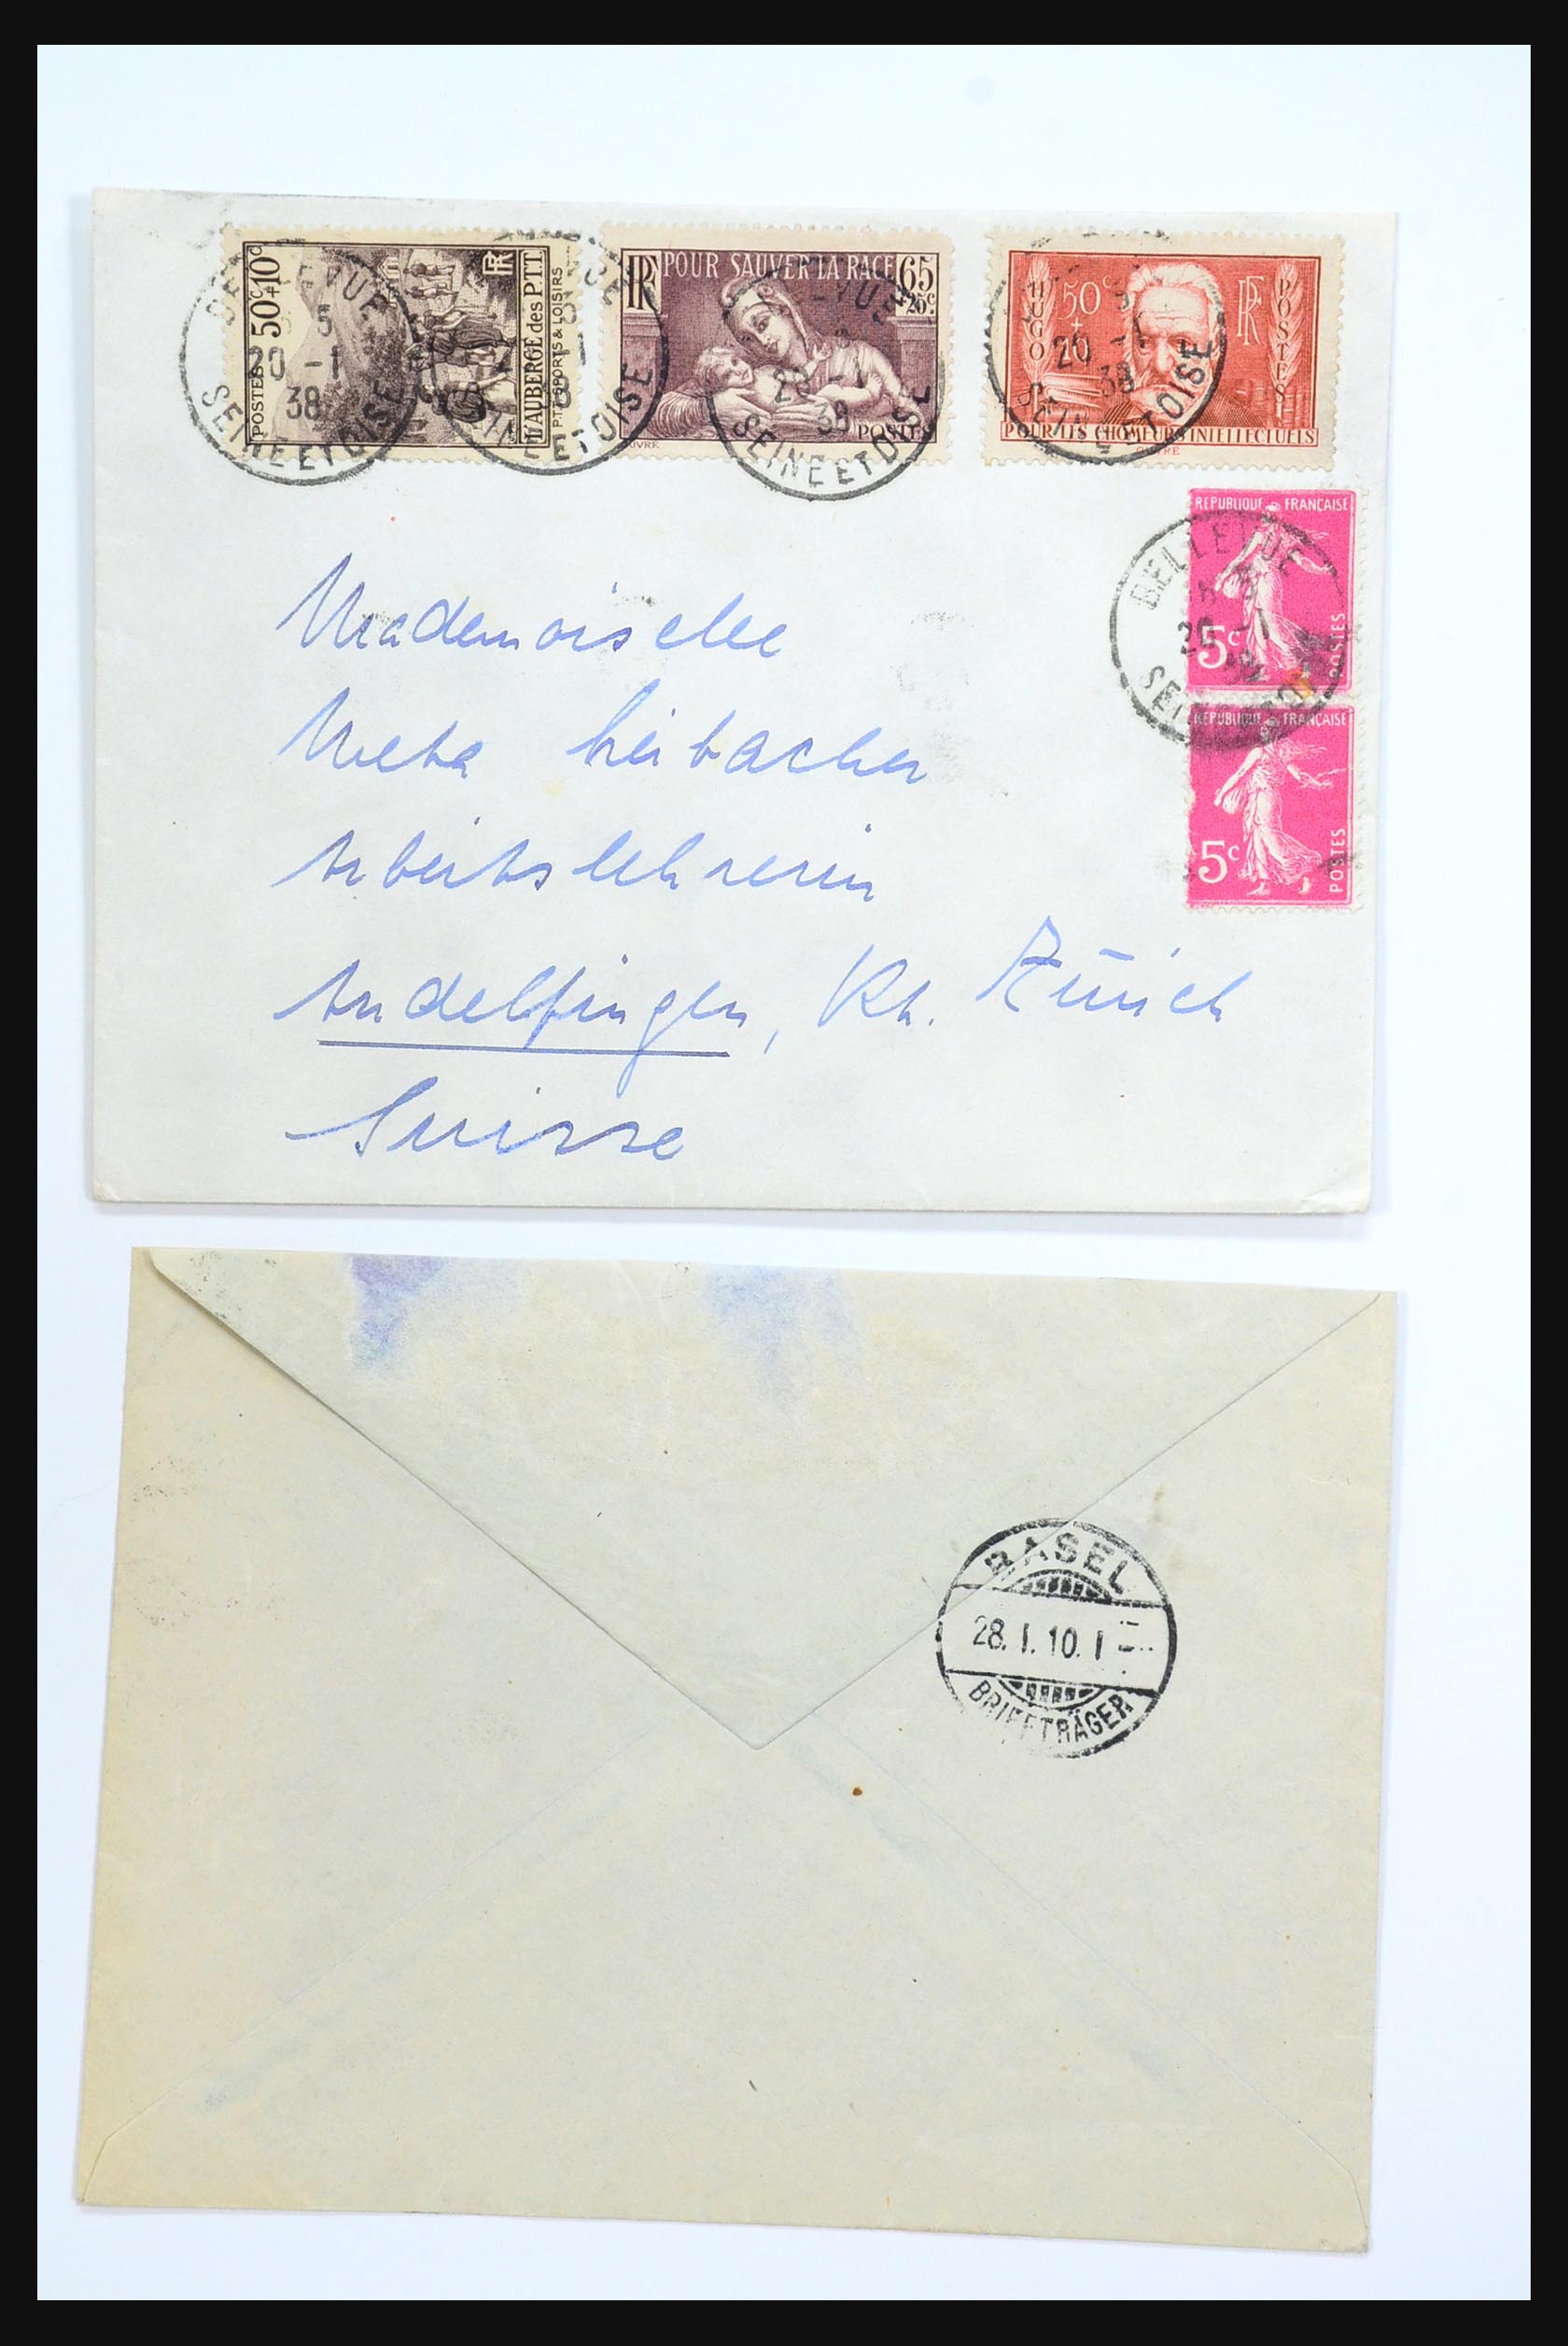 POSTES 50c+10c
L'AUBERGE des P.T.T.
P.T.T. SPORTS & LOISIRS
RF
5
20 -1
38
SEINE ET OISE
RF POUR SAUVER LA RACE 65
+25c
POSTES
20 -1
38
SEINE ET OISE
HUGO
50c
+
10
RF
POSTES
POUR LES CHOMEURS INTELLECTUELS
20 -1
38
REPUBLIQUE FRANÇAISE
5c
POSTES
BELLEVUE
20 -1
REPUBLIQUE FRANÇAISE
5c
POSTES
Mademoiselle
Meta
Arbeitslehrerin
Andelfingen, Kt. Zürich
Suisse
BASEL
28. I. 10. I
BRIEFTRÄGER